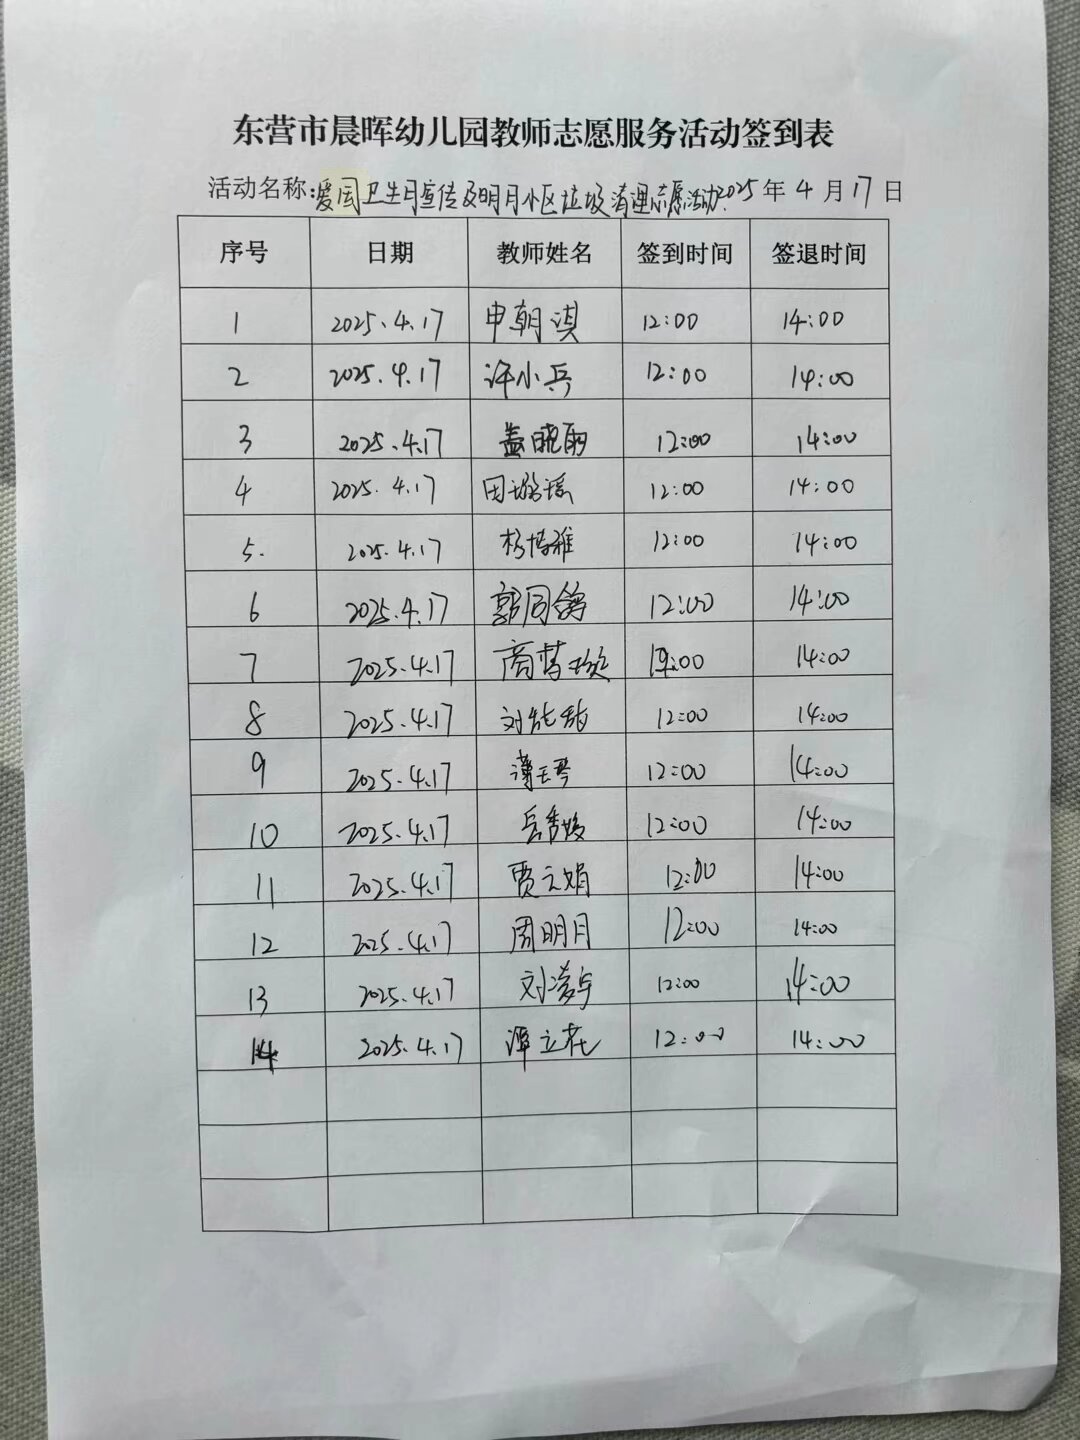 东营市晨晖幼儿园教师志愿服务活动签到表
活动名称:爱国卫生月宣传及明月小区垃圾清理志愿活动. 2025年4月17日
序号 日期 教师姓名 签到时间 签退时间
1 2025.4.17 申朝淇 12:00 14:00
2 2025.4.17 许小兵 12:00 14:00
3 2025.4.17 盖晓雨 12:00 14:00
4 2025.4.17 田璐瑶 12:00 14:00
5. 2025.4.17 杨博雅 12:00 14:00
6 2025.4.17 郭同鸽 12:00 14:00
7 2025.4.17 商梦璇 12:00 14:00
8 2025.4.17 刘 12:00 14:00
9 2025.4.17 12:00 14:00
10 2025.4.17 岳秀 12:00 14:00
11 2025.4.17 贾文娟 12:00 14:00
12 2025.4.17 周明月 12:00 14:00
13 2025.4.17 刘凌宇 12:00 14:00
14 2025.4.17 谭立花 12:00 14:00